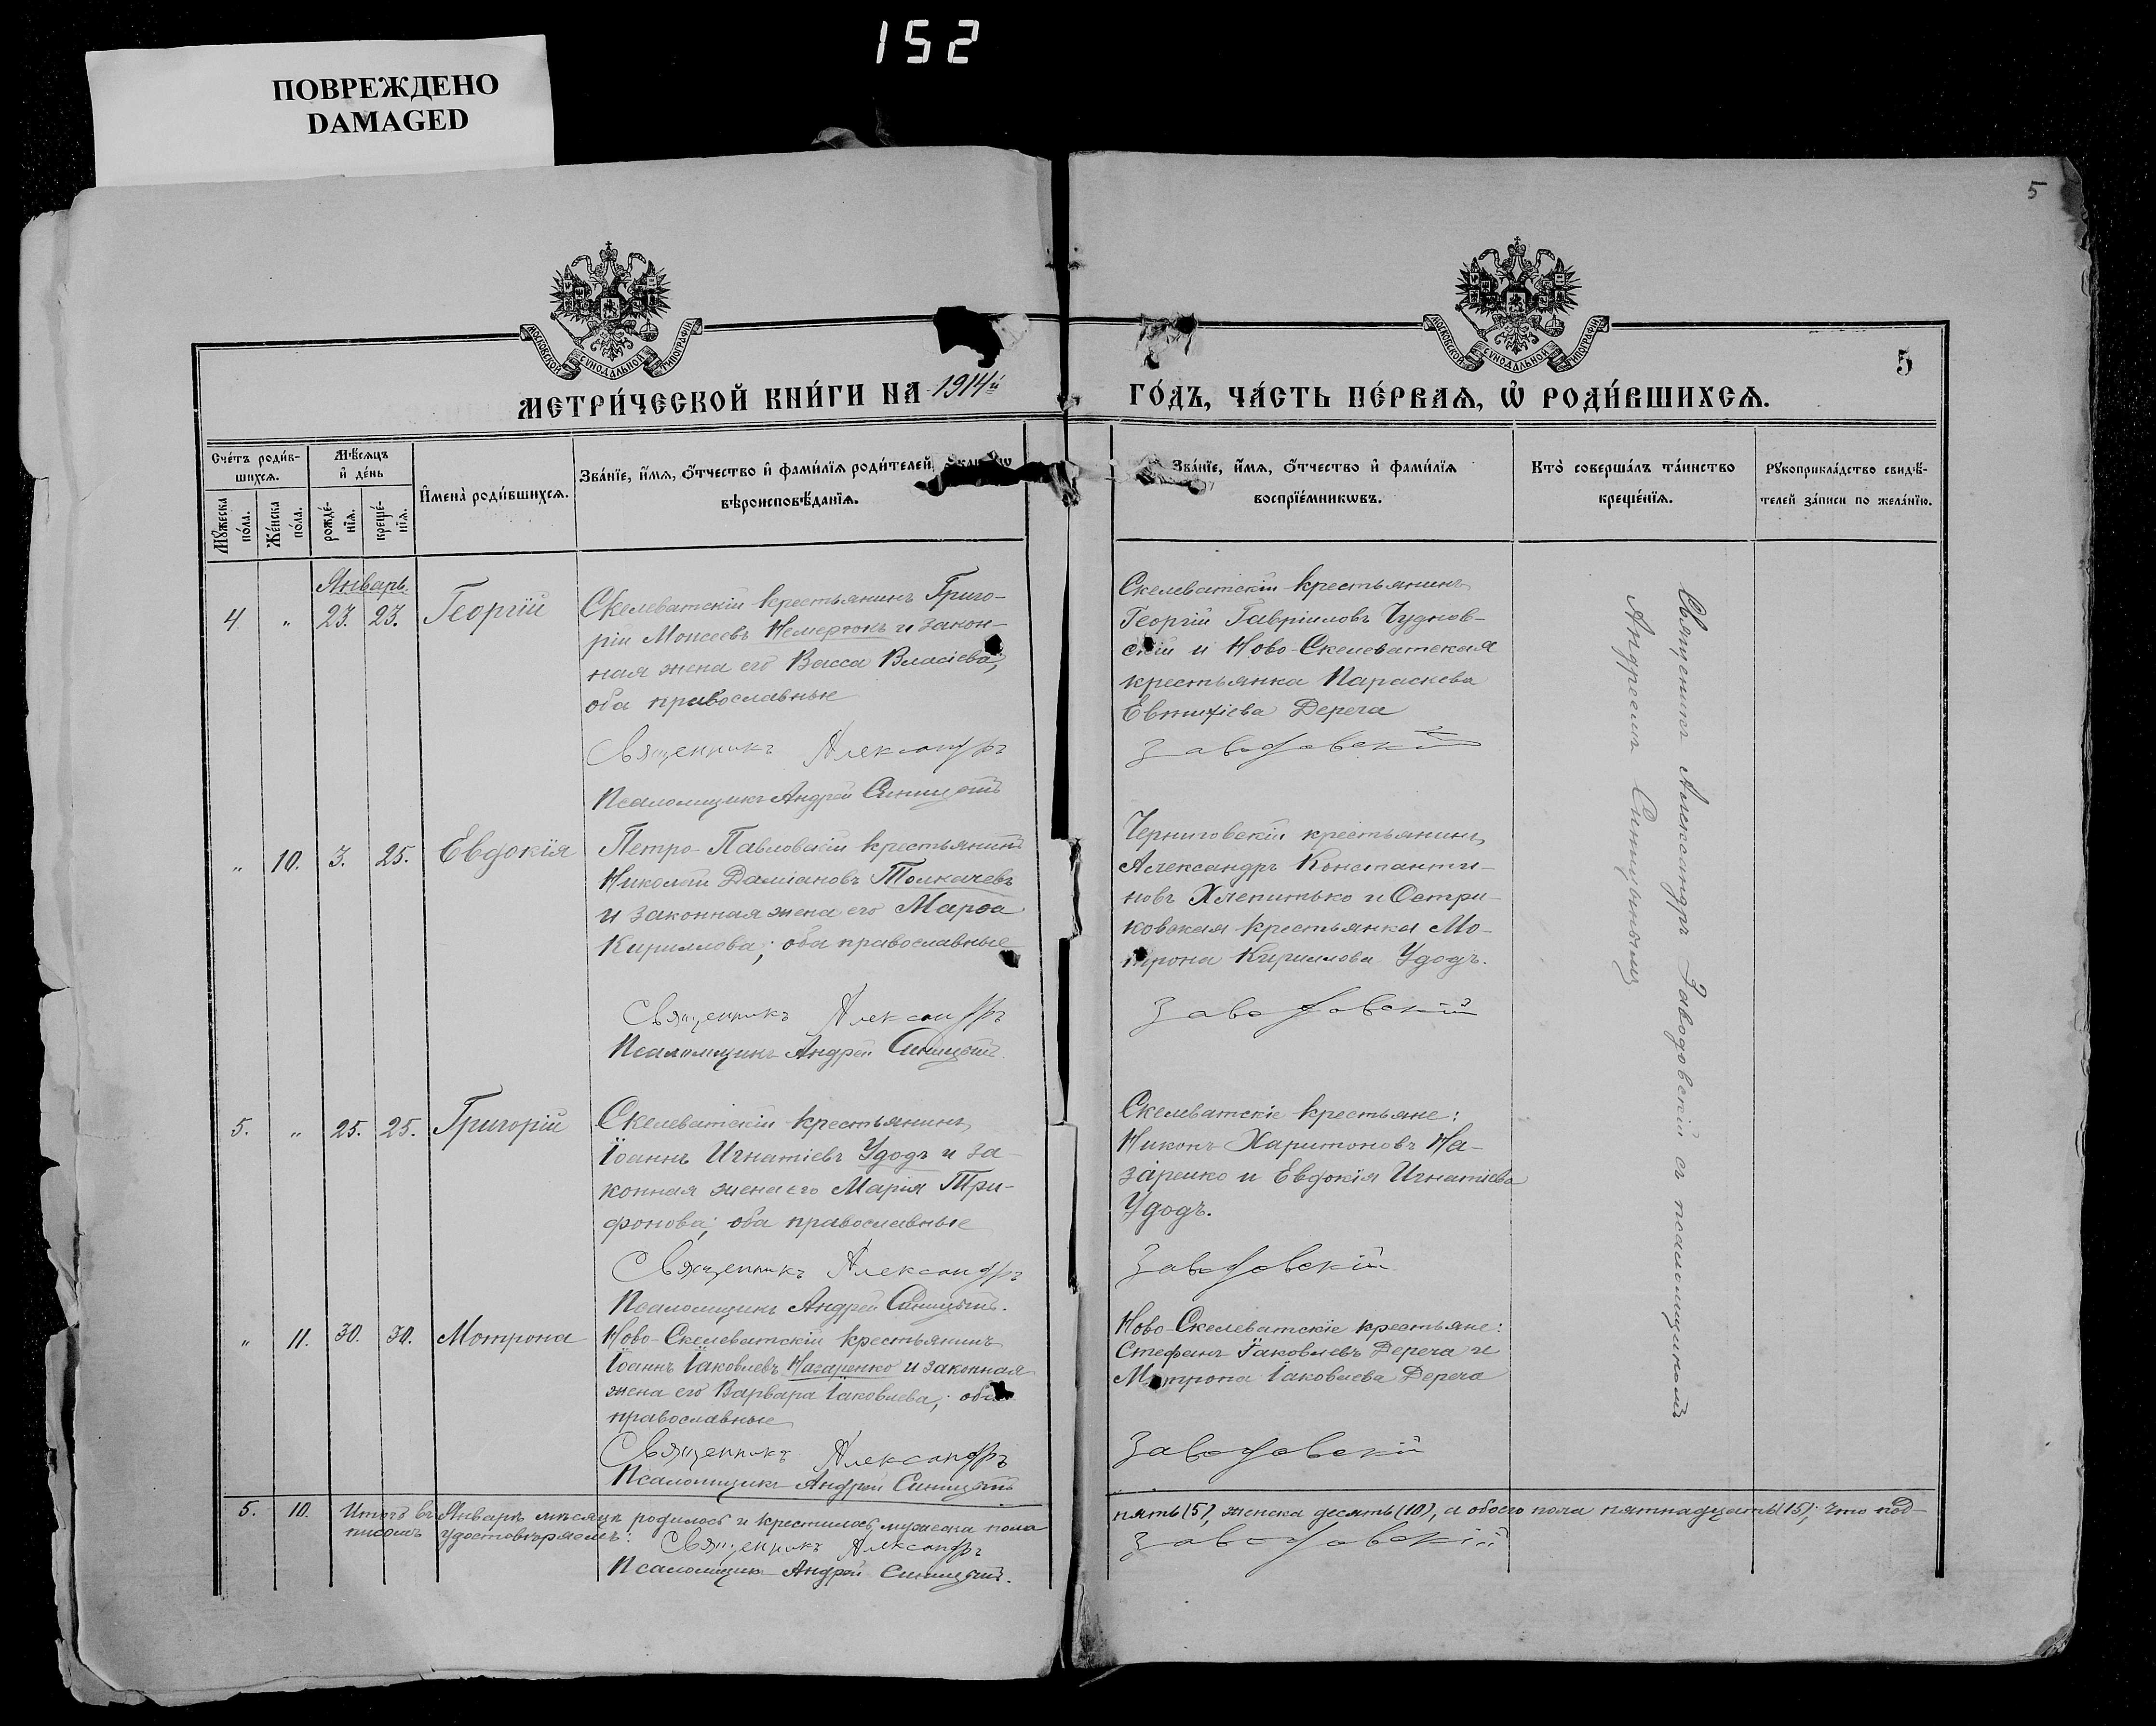 152
ПОВРЕЖДЕНО
DAMAGED
5
МОСКОВСКОЙ СУНОДАЛЬНОЙ ТИПОГРАФІИ
МОСКОВСКОЙ СУНОДАЛЬНОЙ ТИПОГРАФІИ
5
МЕТРИ́ЧЕСКОЙ КНИ́ГИ НА 1914й
ГО́ДЪ, ЧА́СТЬ ПЕ́РВАѦ, Ѡ҆ РОДИ́ВШИХСѦ.
Сче́тъ роди́в-
шихсѧ.
Мѣ́сѧцъ
и҆ де́нь
Мꙋ́жеска
по́ла.
Же́нска
по́ла.
рожде́-
нїѧ.
креще́-
нїѧ.
И҆мена̀ роди́вшихсѧ.
Зва́нїе, и҆́мѧ, ѻ҆́тчество и҆ фами́лїѧ роди́телей,
вѣроисповѣ́данїѧ.
Зва́нїе, и҆́мѧ, ѻ҆́тчество и҆ фами́лїѧ
воспрїе́мникѡвъ.
Кто̀ соверша́лъ та́инство
креще́нїѧ.
Рꙋкоприкла́дство свидѣ́-
телей за́писи по жела́нїю.
Январь.
4. " 23. 23. Георгій
Скелеватскій крестьянинъ Григо-
рій Моисеевъ Немертюкъ и закон-
ная жена его Васса Власіева;
оба православные
Священникъ Александръ
Псаломщикъ Андрей Синицынъ
Скелеватскій крестьянинъ
Георгій Гавріиловъ Чуднов-
скій и Ново-Скелеватская
крестьянка Параскева
Евтихіева Дереча
Заводовскій
" 10. 3. 25. Евдокія
Петро-Павловскій крестьянинъ
Николай Даміановъ Толкачевъ
и законная жена его Марѳа
Кириллова; оба православные
Священникъ Александръ
Псаломщикъ Андрей Синицынъ.
Черниговскій крестьянинъ
Александръ Константи-
новъ Хлепитько и Остри-
ковская крестьянка Мо-
трона Кириллова Удодъ.
Заводовскій
5. " 25. 25. Григорій
Скелеватскій крестьянинъ
Іоаннъ Игнатіевъ Удодъ и за-
конная жена его Марія Три-
фонова; оба православные
Священникъ Александръ
Псаломщикъ Андрей Синицынъ.
Скелеватскіе крестьяне:
Никонъ Харитоновъ На-
заренко и Евдокія Игнатіева
Удодъ.
Заводовскій
" 11. 30. 30. Мотрона
Ново-Скелеватскій крестьянинъ
Іоаннъ Іаковлевъ Назаренко и законная
жена его Варвара Іаковлева; оба
православные
Священникъ Александръ
Псаломщикъ Андрей Синицынъ
Ново-Скелеватскіе крестьяне:
Стефанъ Іаковлевъ Дереча и
Мотрона Іаковлева Дереча
Заводовскій
Священникъ Александръ Заводовскій съ псаломщикомъ
Андреемъ Синицынымъ
5. 10. Итогъ въ Январѣ мѣсяцѣ родилось и крестилось мужеска пола
пять (5), женска десять (10), а обоего пола пятнадцать (15); что под-
писомъ удостовѣряемъ:
Священникъ Александръ
Заводовскій
Псаломщикъ Андрей Синицынъ.